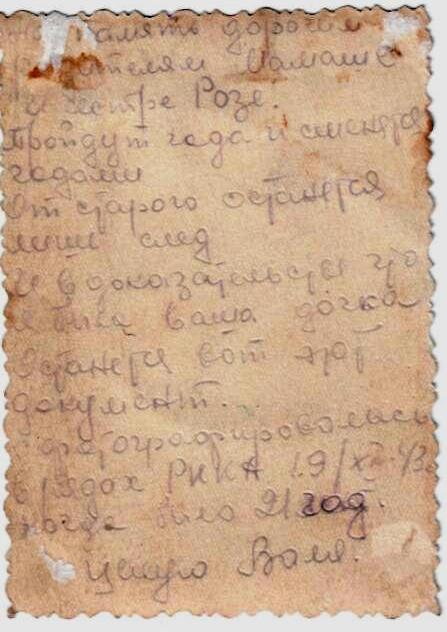 на память дорогим
родителям Мамаше
и сестре Розе.
Пройдут года и сменятся
годами
От старого останется
лиш след
И в доказательство что
я была ваша дочка
Останется вот этот
документ.
фотографировалась
в рядах РККА 19/XII-43
когда было 21 год.
целую Воля.